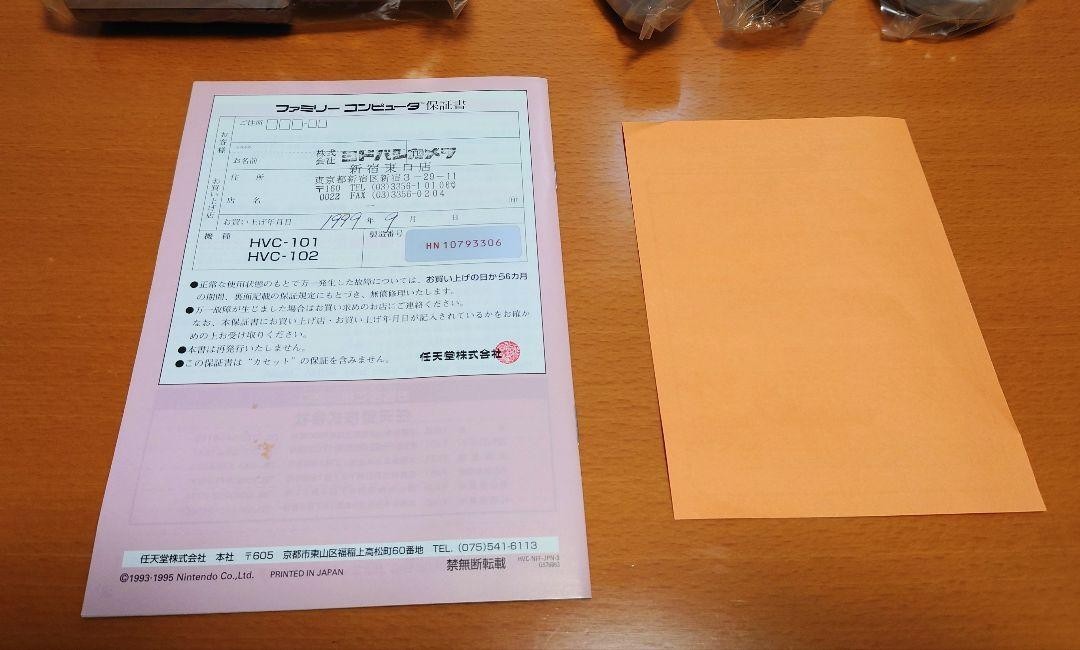 ファミリー コンピュータ 保証書
お客様
ご住所
お名前
お買い上げ店
株式会社 ヨドバシカメラ
新宿東口店
住 所
東京都新宿区新宿3-26-11
〒160 TEL (03)3356-1010㈹
0022 FAX (03)3356-0204
店 名
お買い上げ年月日 1999 年 9 月 日
機 種
HVC-101
HVC-102
製造番号
HN10793306
●正常な使用状態のもとで万一発生した故障については、お買い上げの日から6カ月
の期間、裏面記載の保証規定にもとづき、無償修理いたします。
●万一故障が生じました場合はお買い求めのお店にご連絡ください。
なお、本保証書にお買い上げ店・お買い上げ年月日が記入されているかをお確か
めの上お受け取りください。
●本書は再発行いたしません。
●この保証書は“カセット”の保証を含みません。
任天堂株式会社
任天堂株式会社 本社 〒605 京都市東山区福稲上高松町60番地 TEL. (075)541-6113
©1993-1995 Nintendo Co.,Ltd. PRINTED IN JAPAN
禁無断転載
HVC-NFF-JPN-3